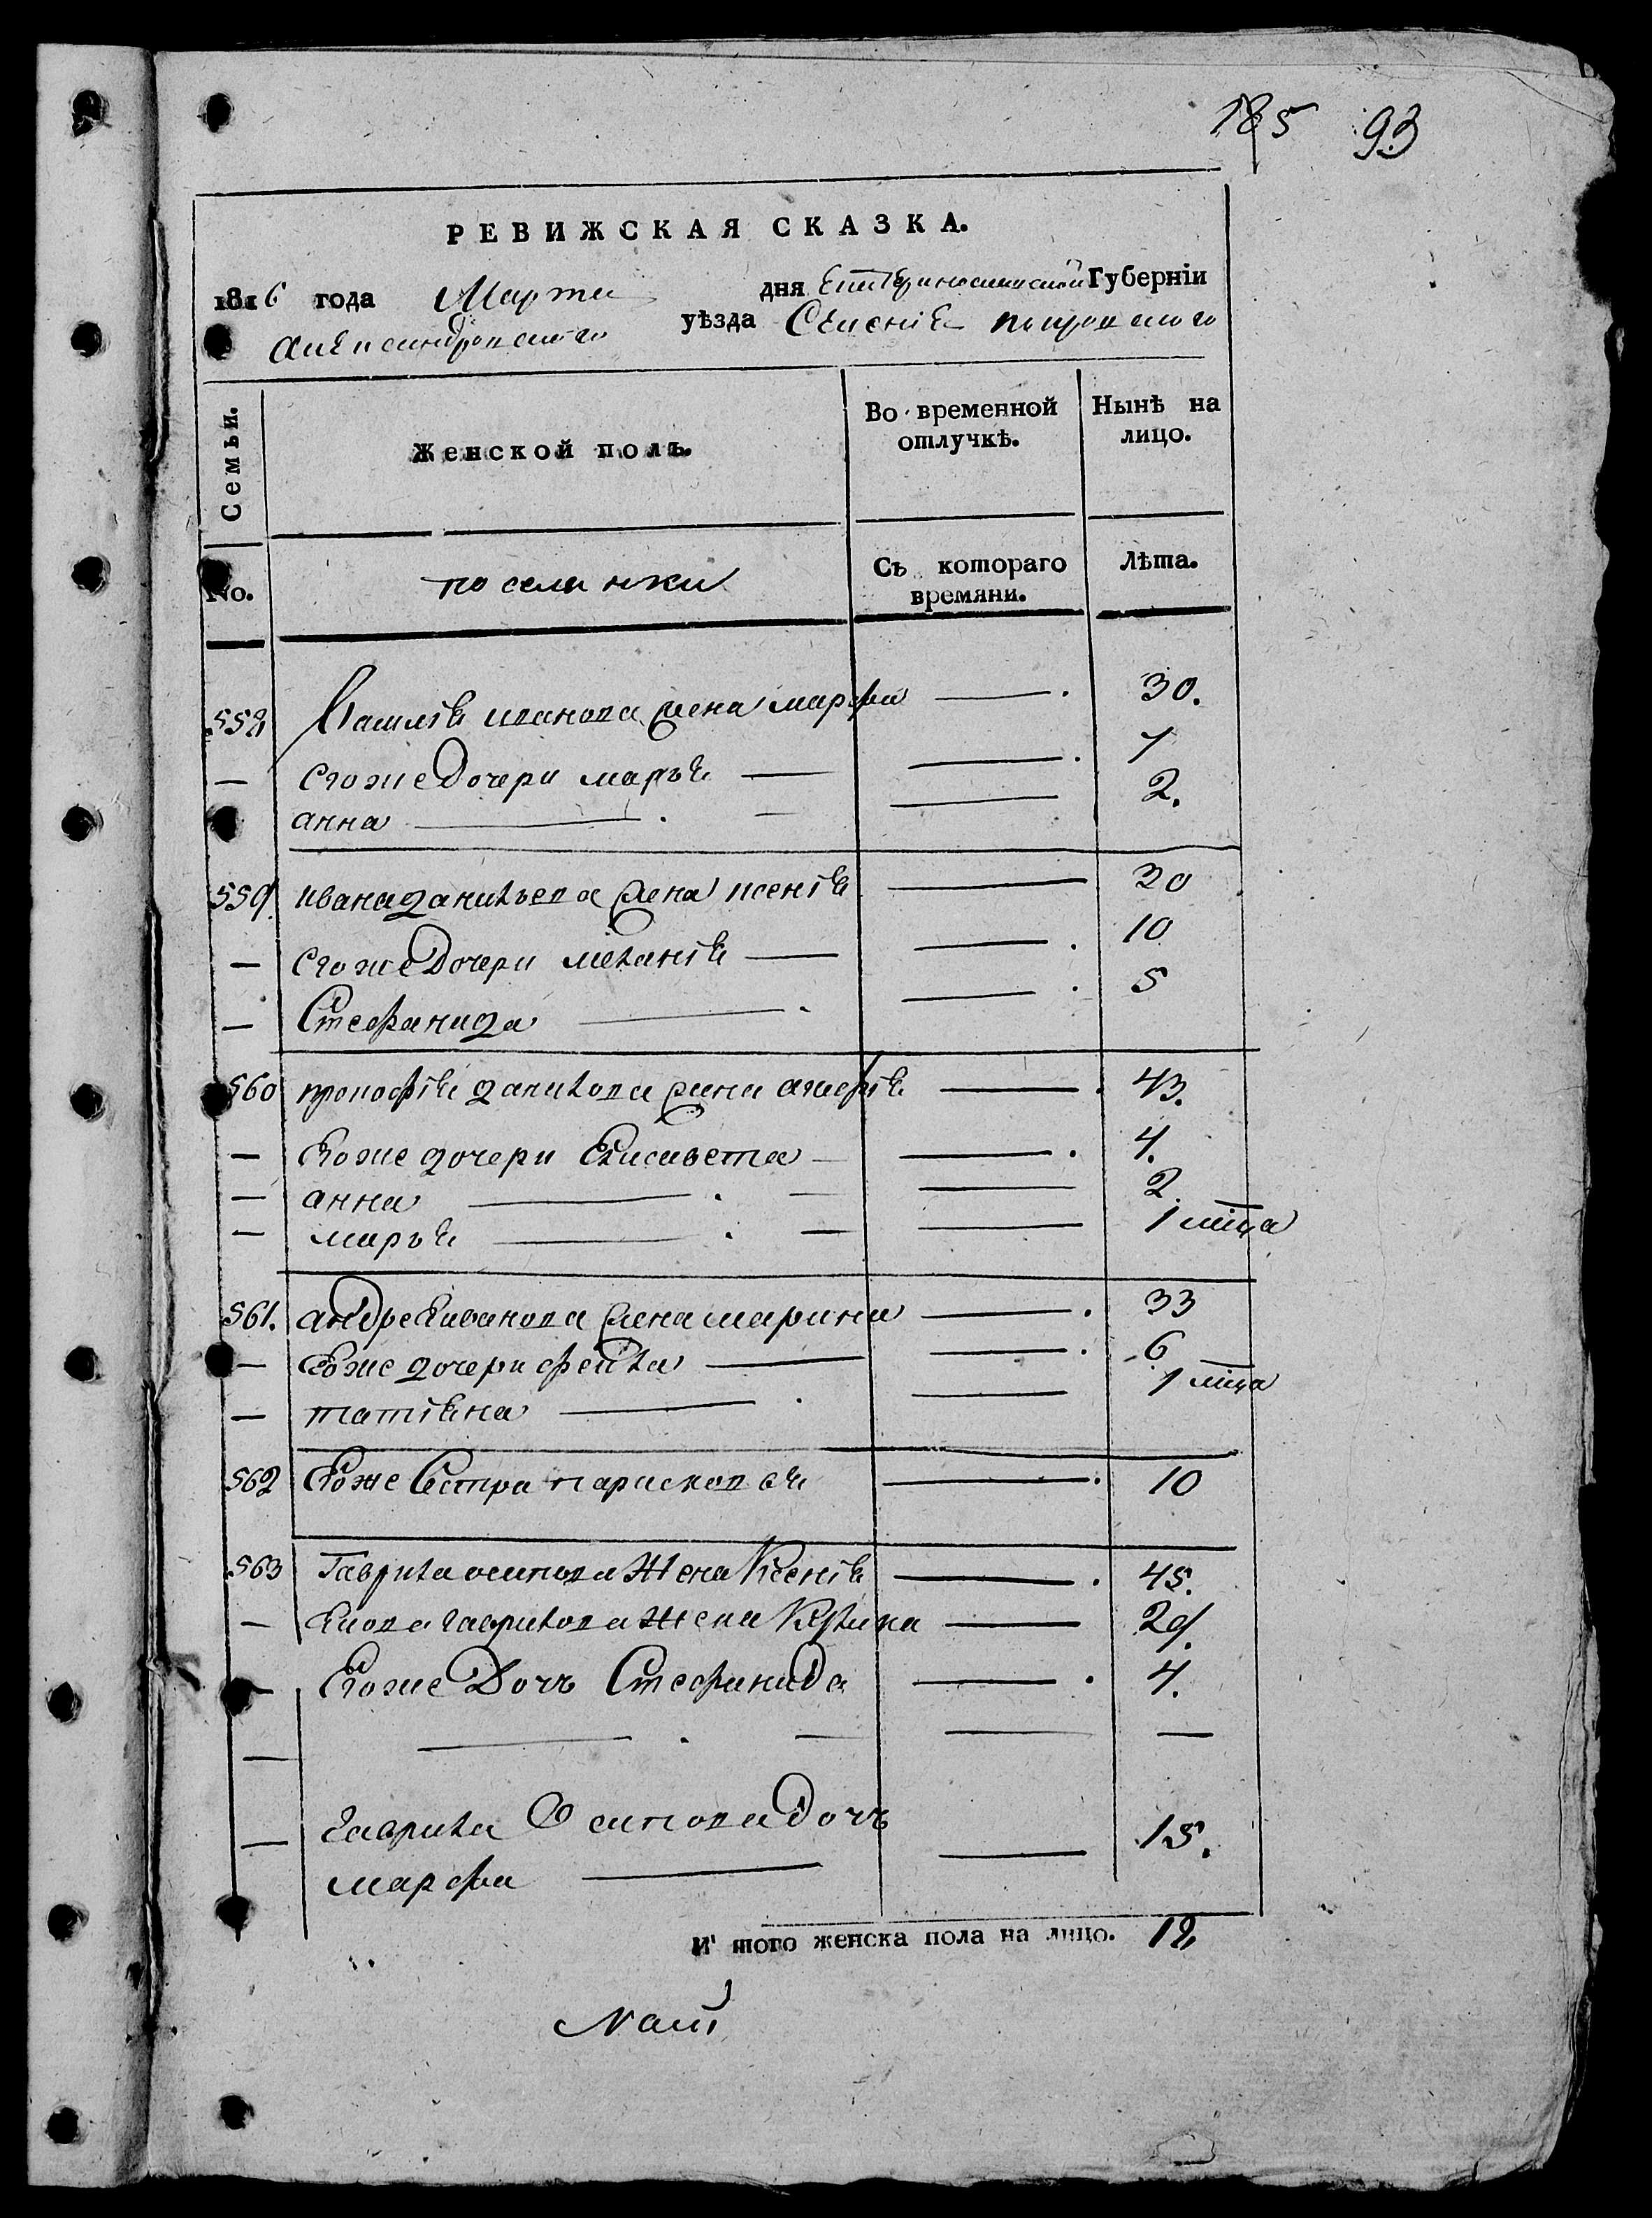 185 93
РЕВИЖСКАЯ СКАЗКА.
1816 года Марта дня Екатеринославской Губерніи
Александровского уѣзда Селенія покровского
Семьи. Женской полъ. Во временной отлучкѣ. Нынѣ на лицо.
No. поселянки Съ котораго времяни. Лѣта.
558 Василія иванова жена марфа — 30.
— Егоже дочери марья — — 7
анна — — 2.
559 ивана данильева жена ксенія — 30
— Егоже дочери меланія — — 10
— Стефанида — — 5
560 прокофія данилова жена — 43.
— Егоже дочери Елисавета — — 4.
— анна — — 2.
— марья — — 1 мца
561. андрея иванова жена марина — 33
— Егоже дочери фекла — — 6
— татіяна — — 1 мца
562 Егоже Сестра парасковья — 10
563 Гаврила осипова жена Ксенія — 45.
— гаврилова жена — 29.
— Егоже Дочь Стефанида — 4.
— — — — —
— гаврила Осипова Дочь — 15.
марфа —
И того женска пола на лицо. 19